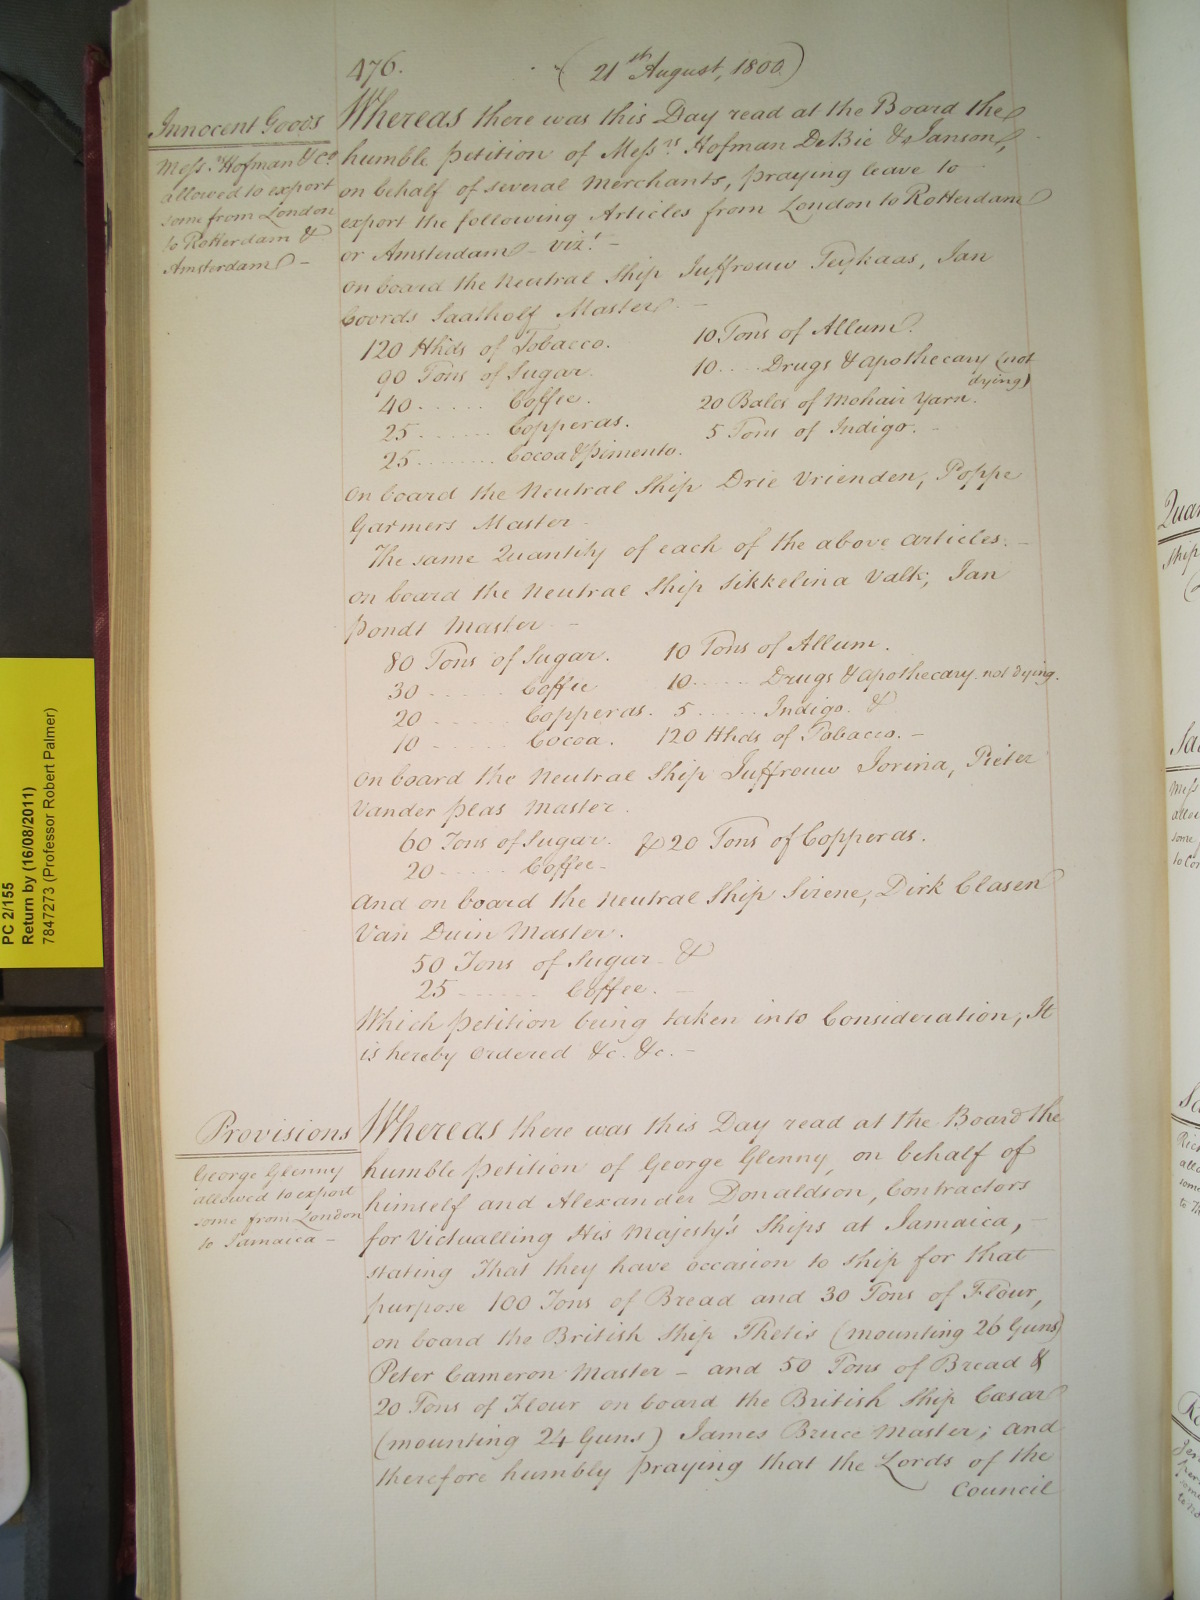 476.
(21th August, 1800)
Innocent Goods
Mess.rs Hofman & Co.
allowed to export
some from London
to Rotterdam &
Amsterdam –
Whereas there was this Day read at the Board the
humble petition of Mess.rs Hofman DeBie & Janson,
on behalf of several Merchants, praying leave to
export the following Articles from London to Rotterdam
or Amsterdam – viz.t –
On board the Neutral Ship Juffrouw Teykaas, Jan
Coords Saatholf Master. –
120 Hhds of Tobacco.
90 Tons of Sugar.
40 ...... Coffee.
25 ...... Copperas.
25 ...... Cocoa & Pimento.
10 Tons of Allum.
10 .... Drugs & apothecary (not
dying)
20 Bales of Mohair Yarn.
5 Tons of Indigo. –
On board the Neutral Ship Drie Vrienden, Poppe
Garmers Master –
The same Quantity of each of the above articles. –
On board the Neutral Ship Sikkelina Valk, Jan
Pondt Master –
80 Tons of Sugar.
30 ...... Coffee
20 ...... Copperas.
10 ...... Cocoa.
10 Tons of Allum.
10 ...... Drugs & apothecary not dying.
5 ...... Indigo. &
120 Hhds of Tobacco. –
On board the Neutral Ship Juffrouw Jorina, Pieter
Vander Plas Master.
60 Tons of Sugar. & 20 Tons of Copperas.
20 ...... Coffee –
And on board the Neutral Ship Sirene, Dirk Clasen
Van Duin Master.
50 Tons of Sugar &
25 ...... Coffee. –
Which Petition being taken into Consideration, It
is hereby Ordered &c. &c. –
Provisions
George Glenny
allowed to export
some from London
to Jamaica –
Whereas there was this Day read at the Board the
humble Petition of George Glenny, on behalf of
himself and Alexander Donaldson, Contractors
for Victualling His Majesty's Ships at Jamaica, –
stating That they have occasion to ship for that
purpose 100 Tons of Bread and 30 Tons of Flour,
on board the British Ship Thetis (mounting 26 Guns)
Peter Cameron Master – and 50 Tons of Bread &
20 Tons of Flour on board the British Ship Cæsar
(mounting 24 Guns) James Bruce Master; and
therefore humbly praying that the Lords of the
Council
PC 2/155
Return by (16/08/2011)
7847273 (Professor Robert Palmer)
Quar
Ship
Sa
Mess
allo
some
to Co
Rich
allo
some
to Th